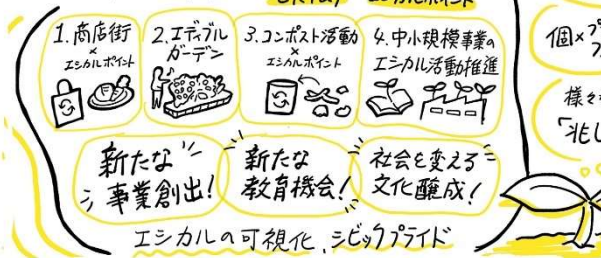 1.商店街
×
エシカルポイント
2.エディブル
ガーデン
3.コンポスト活動
×
エシカルポイント
4.中小規模事業の
エシカル活動推進
新たな
事業創出!
新たな
教育機会!
社会を変える
文化醸成!
エシカルの可視化、シビックプライド
個×
様々